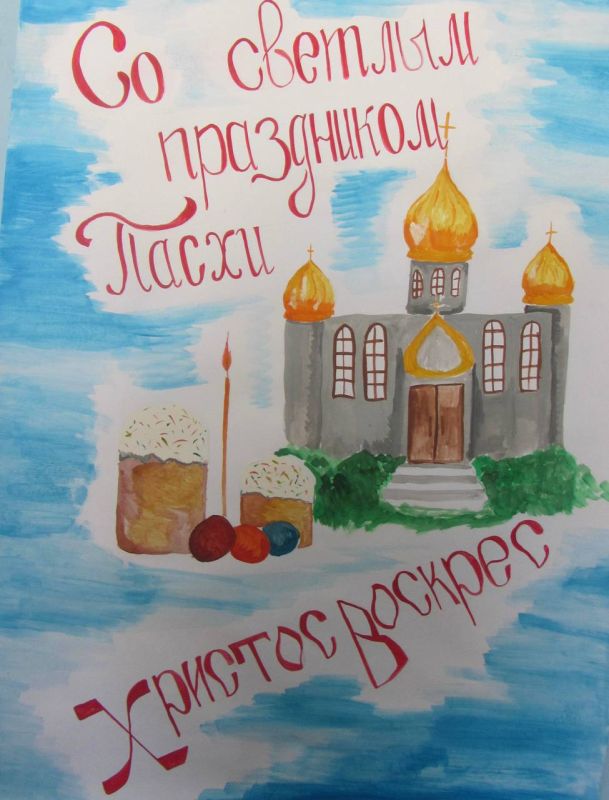 Со светлым
праздником
Пасхи
Христос Воскрес